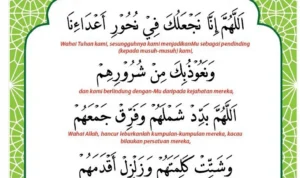 اَللّٰهُمَّ إِنَّا نَجْعَلُكَ فِيْ نُحُوْرِ أَعْدَاءِنَا
Wahai Tuhan kami, sesungguhnya kami menjadikanMu sebagai pendinding
(kepada musuh-musuh) kami,
وَنَعُوْذُبِكَ مِنْ شُرُوْرِهِمْ
dan kami berlindung dengan-Mu daripada kejahatan mereka,
اَللّٰهُمَّ بَدِّدْ شَمْلَهُمْ وَفَرِّقْ جَمْعَهُمْ
Wahai Allah, hancur leburkanlah kumpulan-kumpulan mereka, kacau
bilaukan persatuan mereka,
وَشَتِّتْ كَلِمَتَهُمْ وَزَلْزِلْ أَقْدَمَهُمْ